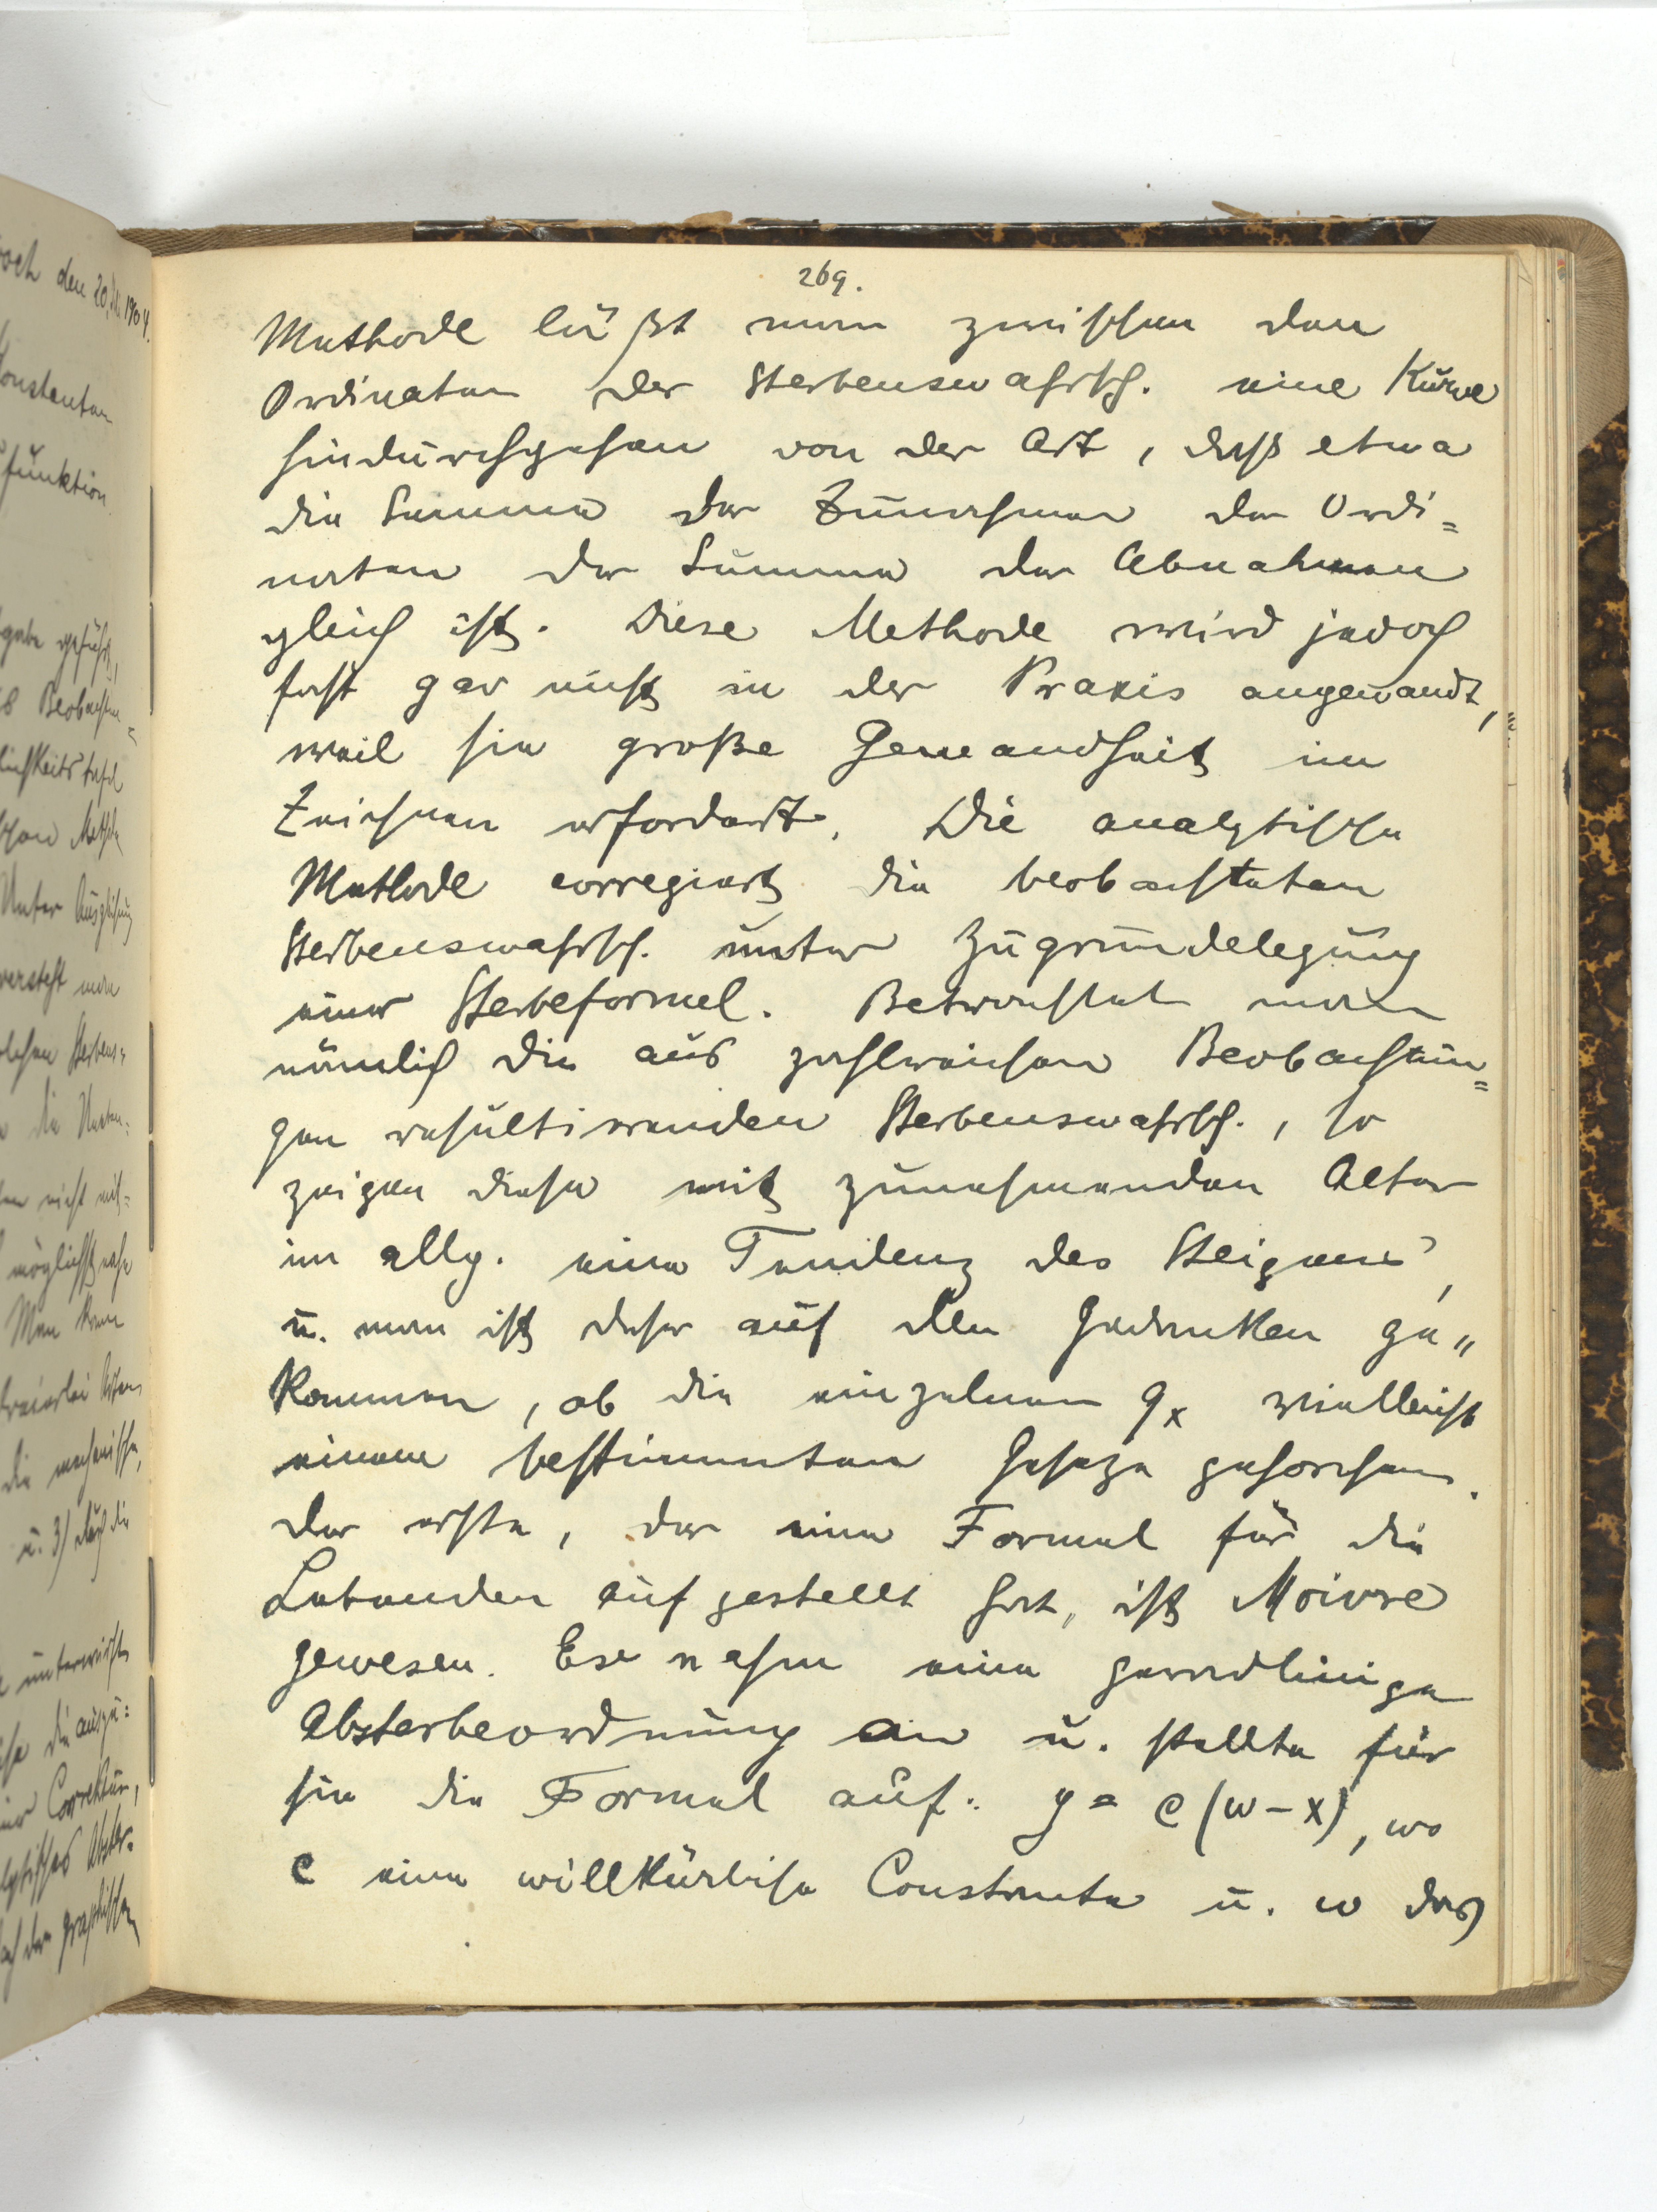 269.
Methode läßt man zwischen den
Ordinaten der Sterbenswahrsch. eine Kurve
hindurchgehen von der Art, daß etwa
die Summe der Zunahmen der Ordi=
naten der Summe der Abnahmen
gleich ist. Diese Methode wird jedoch
fast gar nicht in der Praxis angewandt,
weil sie große Gewandheit im
Zeichnen erfordert. Die analytische
Methode corregiert die beobachteten
Sterbenswahrsch. unter Zugrundelegung
einer Sterbeformel. Betrachtet man
nämlich die aus zahlreichen Beobachtun=
gen resultierenden Sterbenswahrsch., so
zeigen diese mit zunehmenden Alter
im allg. eine Tendenz des Steigens,
u. man ist daher auf den Gedanken ge„
kommen, ob die einzelnen qx vielleicht
einem bestimmten Geseze gehorchen.
Der erste, der eine Formel für die
Lebenden aufgestellt hat, ist Moivre
gewesen. Er nahm eine geradlinige
Absterbeordnung an u. stellte für
sie die Formel auf: y = c(w-x), wo
c eine willkürliche Constante u. w das
och den 20. 1904.
Constanten
funktion
gabe geführt,
Beobachtun=
lichkeitstafel
schen Methode
Unter Ausgleichung
versteht man
lichen Sterbens=
die Unter=
nicht mit=
möglichst nahe
Man kann
dreierlei Arten
die mechanische,
u. 3) durch die
die auszu=
Correktur,
lytisches Abster=
nach der graphischen